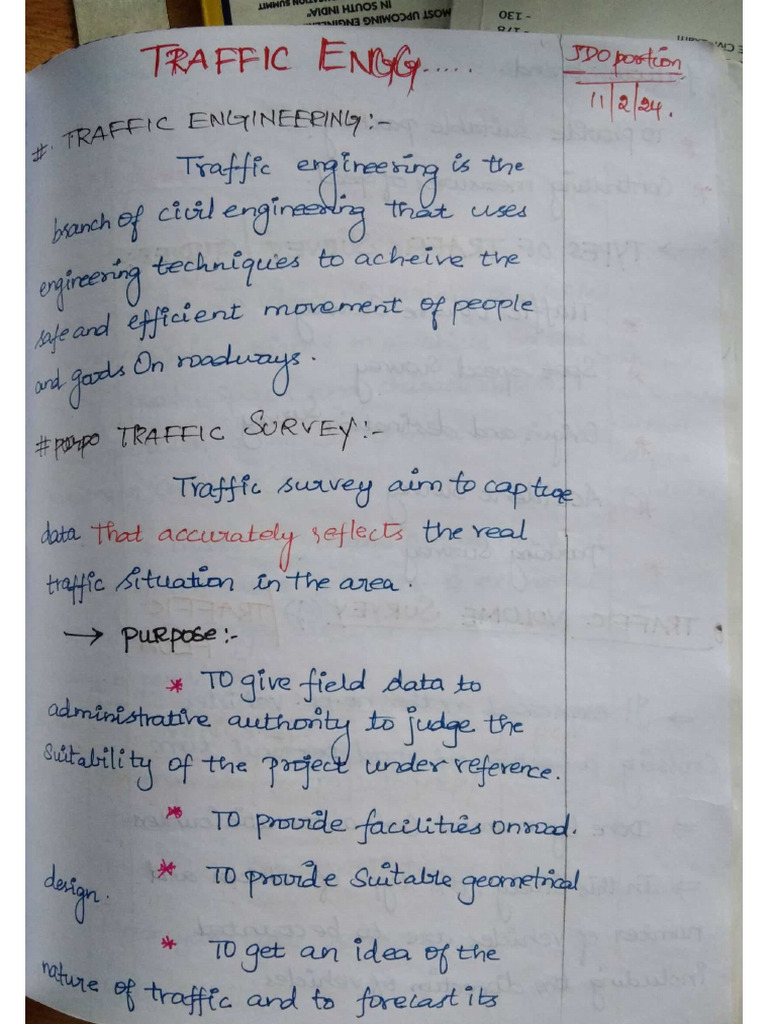 MOST UPCOMING ENGINEERI
IN SOUTH INDIA"
ATION SUMMIT
- 130
- 178
TRAFFIC ENGG.....
JDO portion
11/2/24.
#. TRAFFIC ENGINEERING:-
Traffic engineering is the
branch of civil engineering that uses
engineering techniques to acheive the
safe and efficient movement of people
and goods On roadways.
# TRAFFIC SURVEY:-
Traffic survey aim to capture
data that accurately reflects the real
traffic situation in the area.
→ purpose:-
* To give field data to
administrative authority to judge the
Suitability of the project under reference.
* To provide facilities on road.
* To provide suitable geometrical
design.
* To get an idea of the
nature of traffic and to forecast its